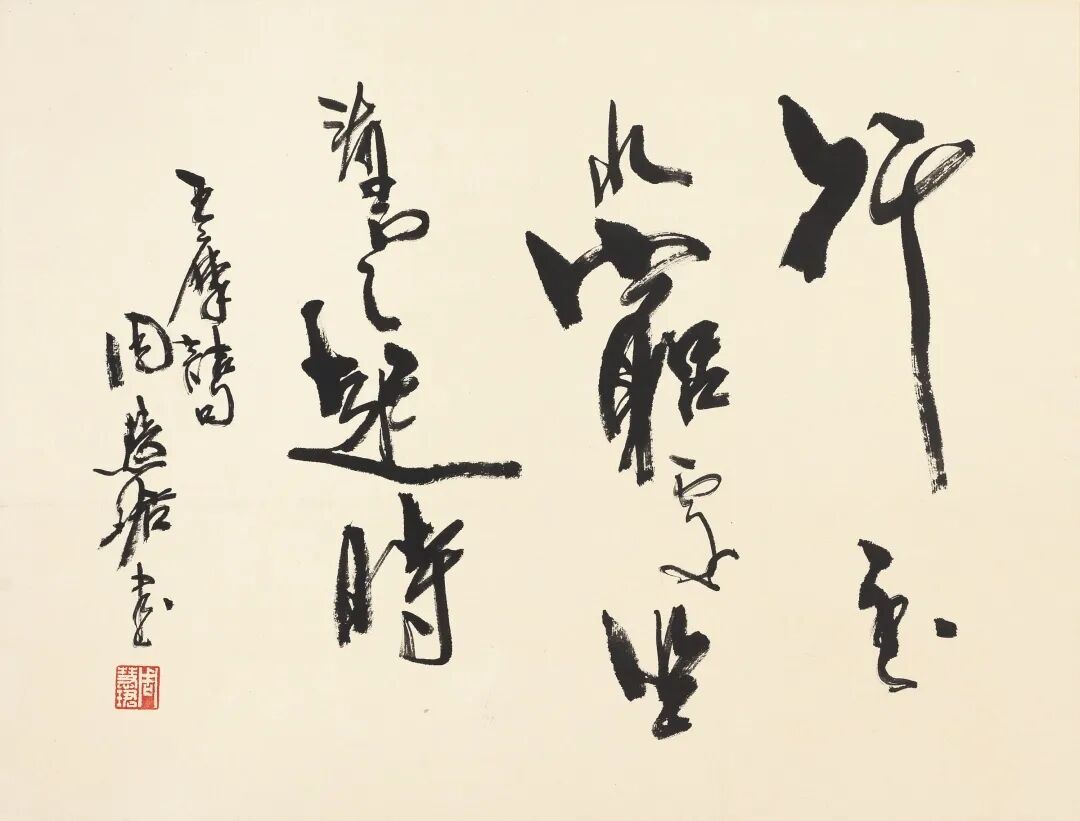 行至
水窮處坐
看雲起時
王摩詰句
周慧珺書
周慧珺